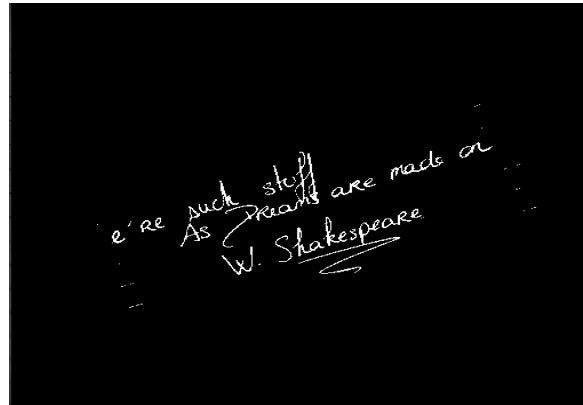 e're such stuff
As Dreams are made on
W. Shakespeare